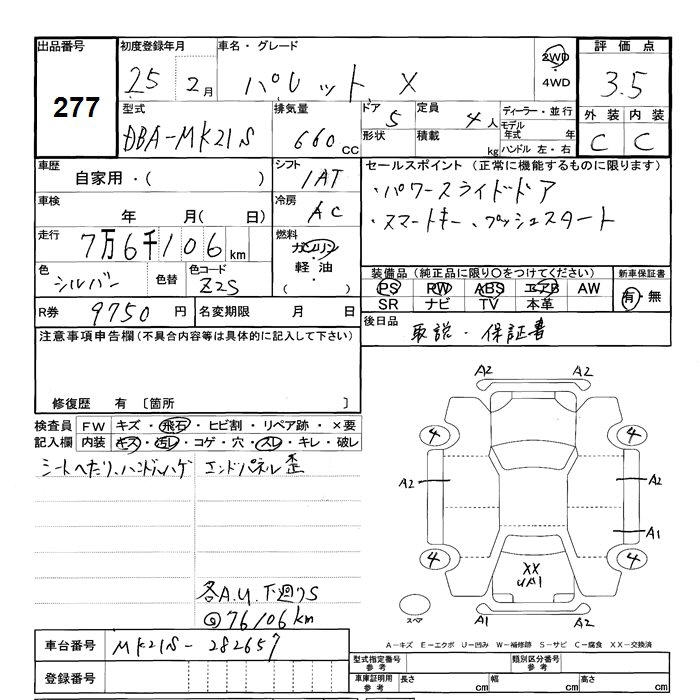 出品番号 初度登録年月 車名・グレード 2WD 評価点
277 25 2月 パレット X 4WD 3.5
型式 排気量 ドア 5 定員 4人 ディーラー・並行 外装 内装
モデル年式 年
DBA-MK21S 660cc 形状 積載 kg ハンドル 左・右 C C
車歴 シフト セールスポイント (正常に機能するものに限ります)
自家用・( ) 1AT ・パワースライドドア
車検 冷房 ・スマートキー、プッシュスタート
年 月(日) AC
走行 燃料
7万6千106km ガソリン
軽油
( )
色 色替 色コード 装備品(純正品に限り○をつけてください) 新車保証書
シルバー Z2S PS PW ABS エアB AW 有・無
SR ナビ TV 本革
R券 9750円 名変期限 月 日 後日品 取説・保証書
注意事項申告欄(不具合内容等は具体的に記入して下さい)
修復歴 有 〔箇所 〕
検査員 FW キズ・飛石・ヒビ割・リペア跡・×要
記入欄 内装 キズ・汚レ・コゲ・穴・スレ・キレ・破レ
シートヘたり、ハンドルハゲ エンドパネル歪
各A.U.下廻りS
@76106km
A2 A2
4 4
A2 A2
A1
4 4
XX
UA1
スペア A1 A2
A-キズ E-エクボ U-凹み W-補修跡 S-サビ C-腐食 XX-交換済
車台番号 MK21S-282657
登録番号
型式指定番号 参考 類別区分番号 参考
車庫証明用 参考 長さ cm 幅 cm 高さ cm